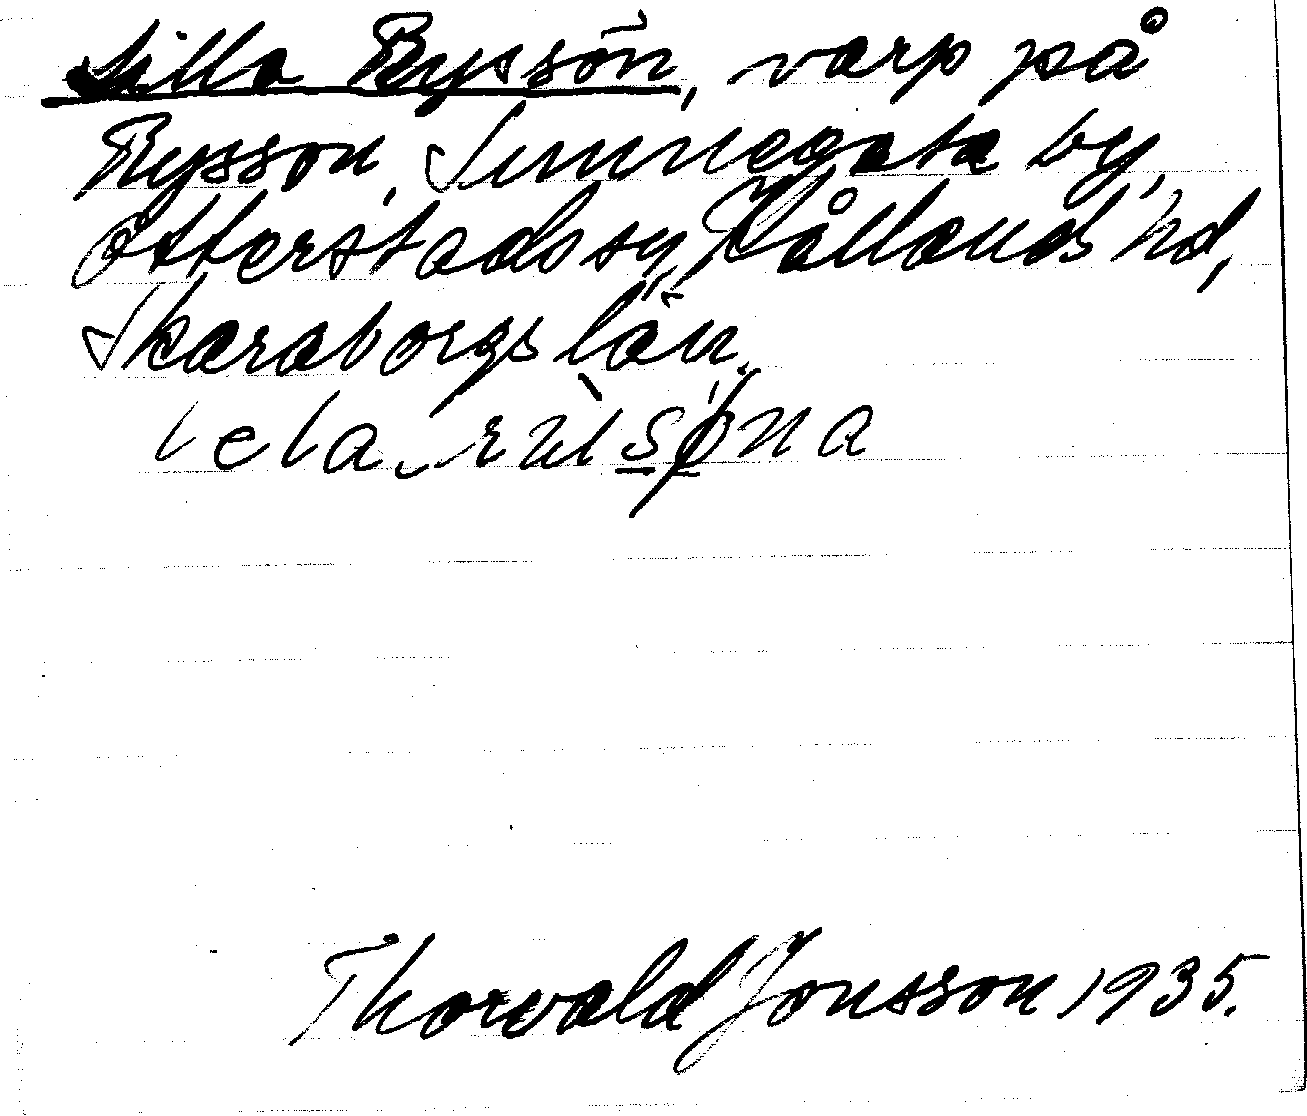 Lilla Ryssön, varp på
Rysson, Sunnegata by,
Otterstads sn, Kållands hd,
Skaraborgs län.
Thorvald Jonsson 1935.